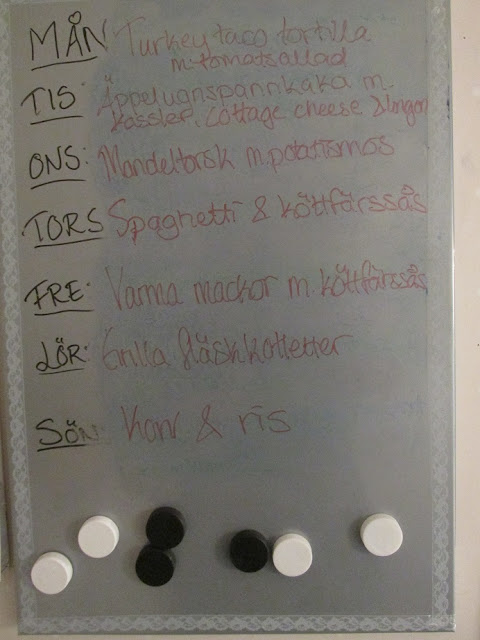 MÅN Turkey taco tortilla
m. tomatsallad
TIS: Äppelugnspannkaka m.
kassler, cottage cheese & lingon
ONS: Mandeltorsk m. potatismos
TORS Spaghetti & köttfärssås
FRE: Varma mackor m. köttfärssås
LÖR: Grilla fläskkotletter
SÖN: Korv & ris